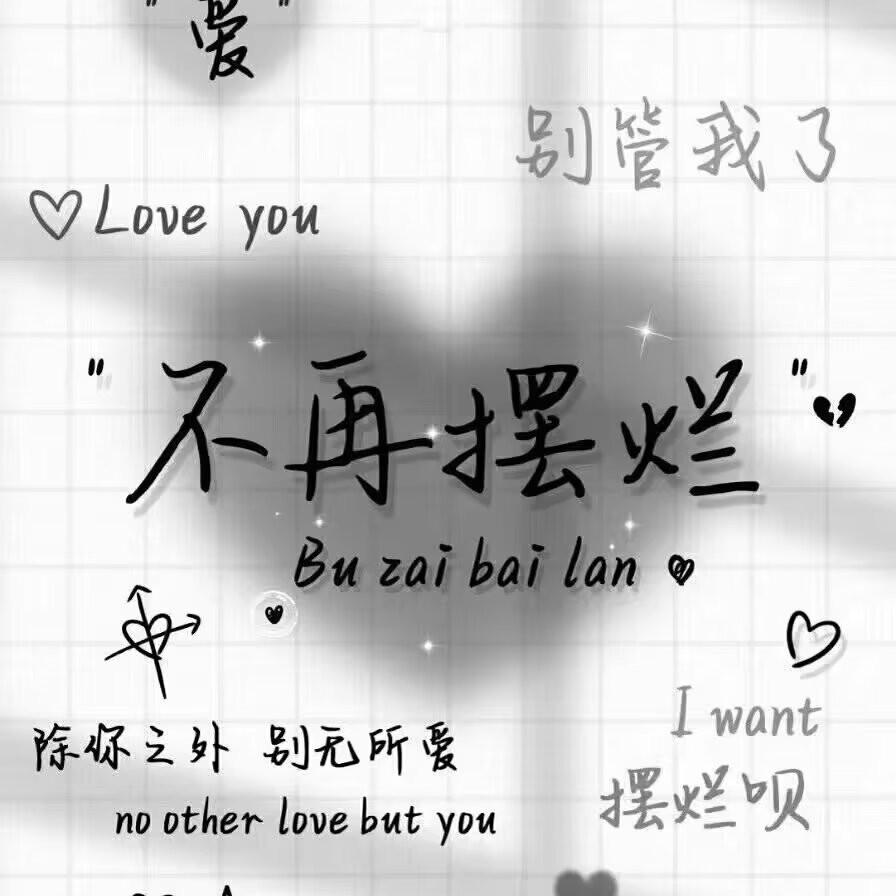 "爱"
别管我了
Love you
"不再摆烂"
Bu zai bai lan
除你之外 别无所爱
no other love but you
I want
摆烂呗